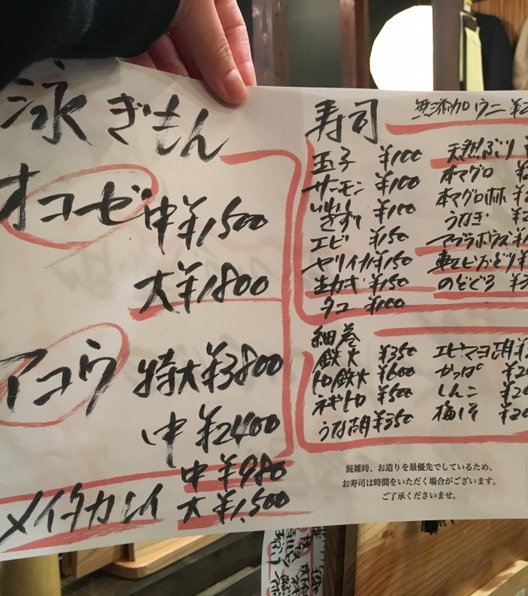 泳ぎもん
オコゼ 中¥1500
大¥1800
アコウ 特大¥3800
中¥2400
メイタカレイ 中¥980
大¥1,500
寿司
玉子 ¥100
サーモン ¥100
¥100
エビ ¥150
ヤリイカ ¥150
生カキ ¥150
タコ ¥100
無添加ウニ
天然ぶり
本マグロ
うなぎ
のどぐろ
細巻
鉄火 ¥350
トロ鉄火 ¥600
ネギトロ ¥500
うな胡 ¥350
エビマヨ胡
かっぱ
しんこ
梅しそ
混雑時、お造りを最優先でしているため、
お寿司は時間をいただく場合がございます。
ご了承くださいませ。